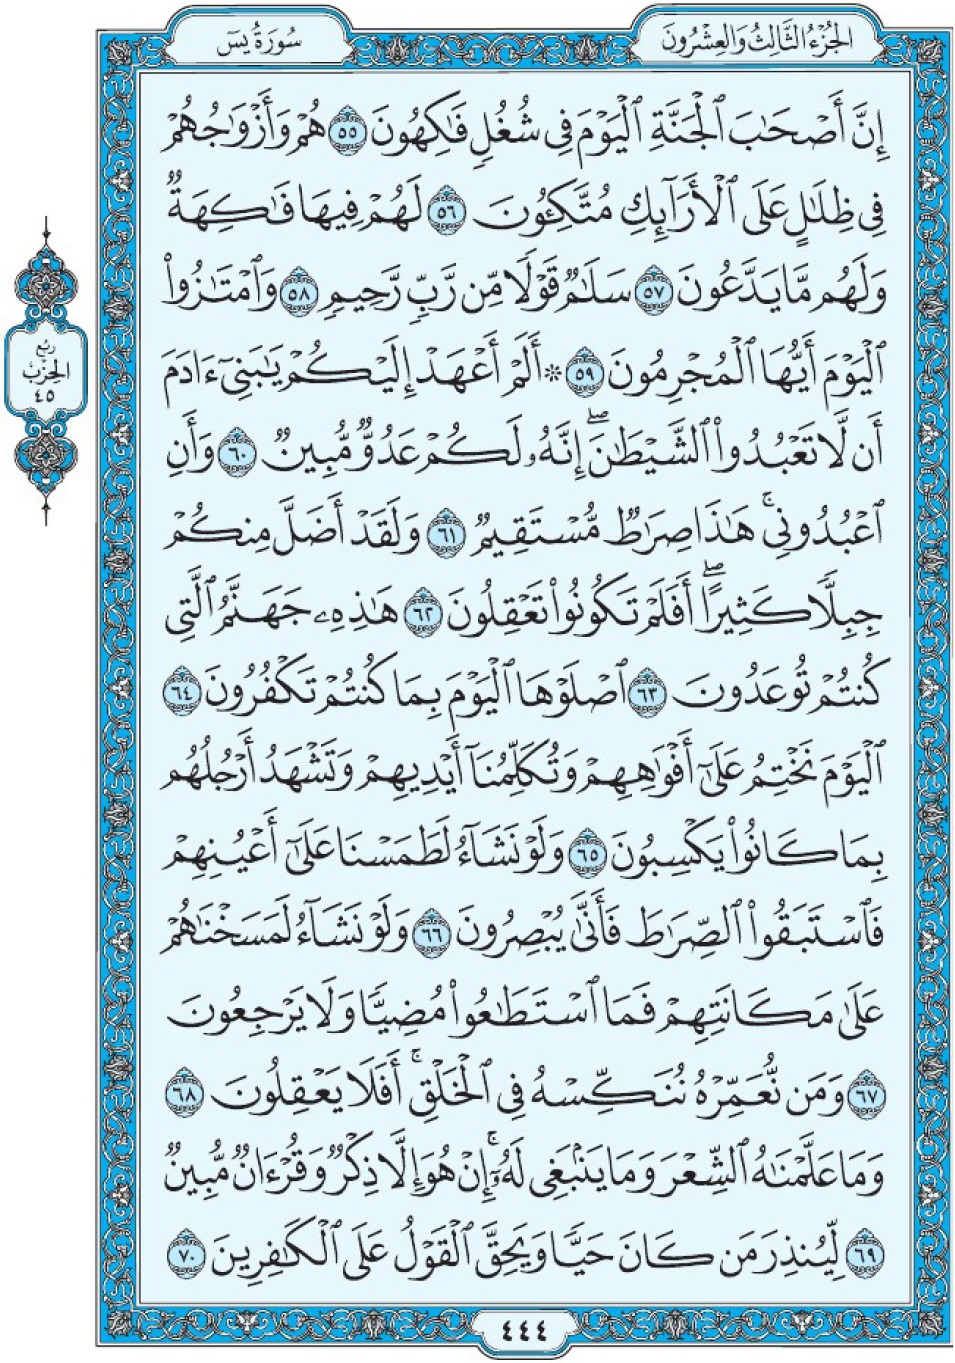 الجُزْءُ الثَّالِثُ وَالعِشْرُونَ
سُورَةُ يسٓ
إِنَّ أَصْحَٰبَ ٱلْجَنَّةِ ٱلْيَوْمَ فِى شُغُلٍ فَٰكِهُونَ ٥٥ هُمْ وَأَزْوَٰجُهُمْ
فِى ظِلَٰلٍ عَلَى ٱلْأَرَآئِكِ مُتَّكِـُٔونَ ٥٦ لَهُمْ فِيهَا فَٰكِهَةٌ
وَلَهُم مَّا يَدَّعُونَ ٥٧ سَلَٰمٌ قَوْلًا مِّن رَّبٍّ رَّحِيمٍ ٥٨ وَٱمْتَٰزُوا۟
ٱلْيَوْمَ أَيُّهَا ٱلْمُجْرِمُونَ ٥٩ ۞ أَلَمْ أَعْهَدْ إِلَيْكُمْ يَٰبَنِىٓ ءَادَمَ
أَن لَّا تَعْبُدُوا۟ ٱلشَّيْطَٰنَ ۖ إِنَّهُۥ لَكُمْ عَدُوٌّ مُّبِينٌ ٦٠ وَأَنِ
ٱعْبُدُونِى ۚ هَٰذَا صِرَٰطٌ مُّسْتَقِيمٌ ٦١ وَلَقَدْ أَضَلَّ مِنكُمْ
جِبِلًّا كَثِيرًا ۖ أَفَلَمْ تَكُونُوا۟ تَعْقِلُونَ ٦٢ هَٰذِهِۦ جَهَنَّمُ ٱلَّتِى
كُنتُمْ تُوعَدُونَ ٦٣ ٱصْلَوْهَا ٱلْيَوْمَ بِمَا كُنتُمْ تَكْفُرُونَ ٦٤
ٱلْيَوْمَ نَخْتِمُ عَلَىٰٓ أَفْوَٰهِهِمْ وَتُكَلِّمُنَآ أَيْدِيهِمْ وَتَشْهَدُ أَرْجُلُهُم
بِمَا كَانُوا۟ يَكْسِبُونَ ٦٥ وَلَوْ نَشَآءُ لَطَمَسْنَا عَلَىٰٓ أَعْيُنِهِمْ
فَٱسْتَبَقُوا۟ ٱلصِّرَٰطَ فَأَنَّىٰ يُبْصِرُونَ ٦٦ وَلَوْ نَشَآءُ لَمَسَخْنَٰهُمْ
عَلَىٰ مَكَانَتِهِمْ فَمَا ٱسْتَطَٰعُوا۟ مُضِيًّا وَلَا يَرْجِعُونَ
٦٧ وَمَن نُّعَمِّرْهُ نُنَكِّسْهُ فِى ٱلْخَلْقِ ۚ أَفَلَا يَعْقِلُونَ ٦٨
وَمَا عَلَّمْنَٰهُ ٱلشِّعْرَ وَمَا يَنۢبَغِى لَهُۥٓ ۚ إِنْ هُوَ إِلَّا ذِكْرٌ وَقُرْءَانٌ مُّبِينٌ
٦٩ لِّيُنذِرَ مَن كَانَ حَيًّا وَيَحِقَّ ٱلْقَوْلُ عَلَى ٱلْكَٰفِرِينَ ٧٠
رُبُع
الحِزْب
٤٥
٤٤٤